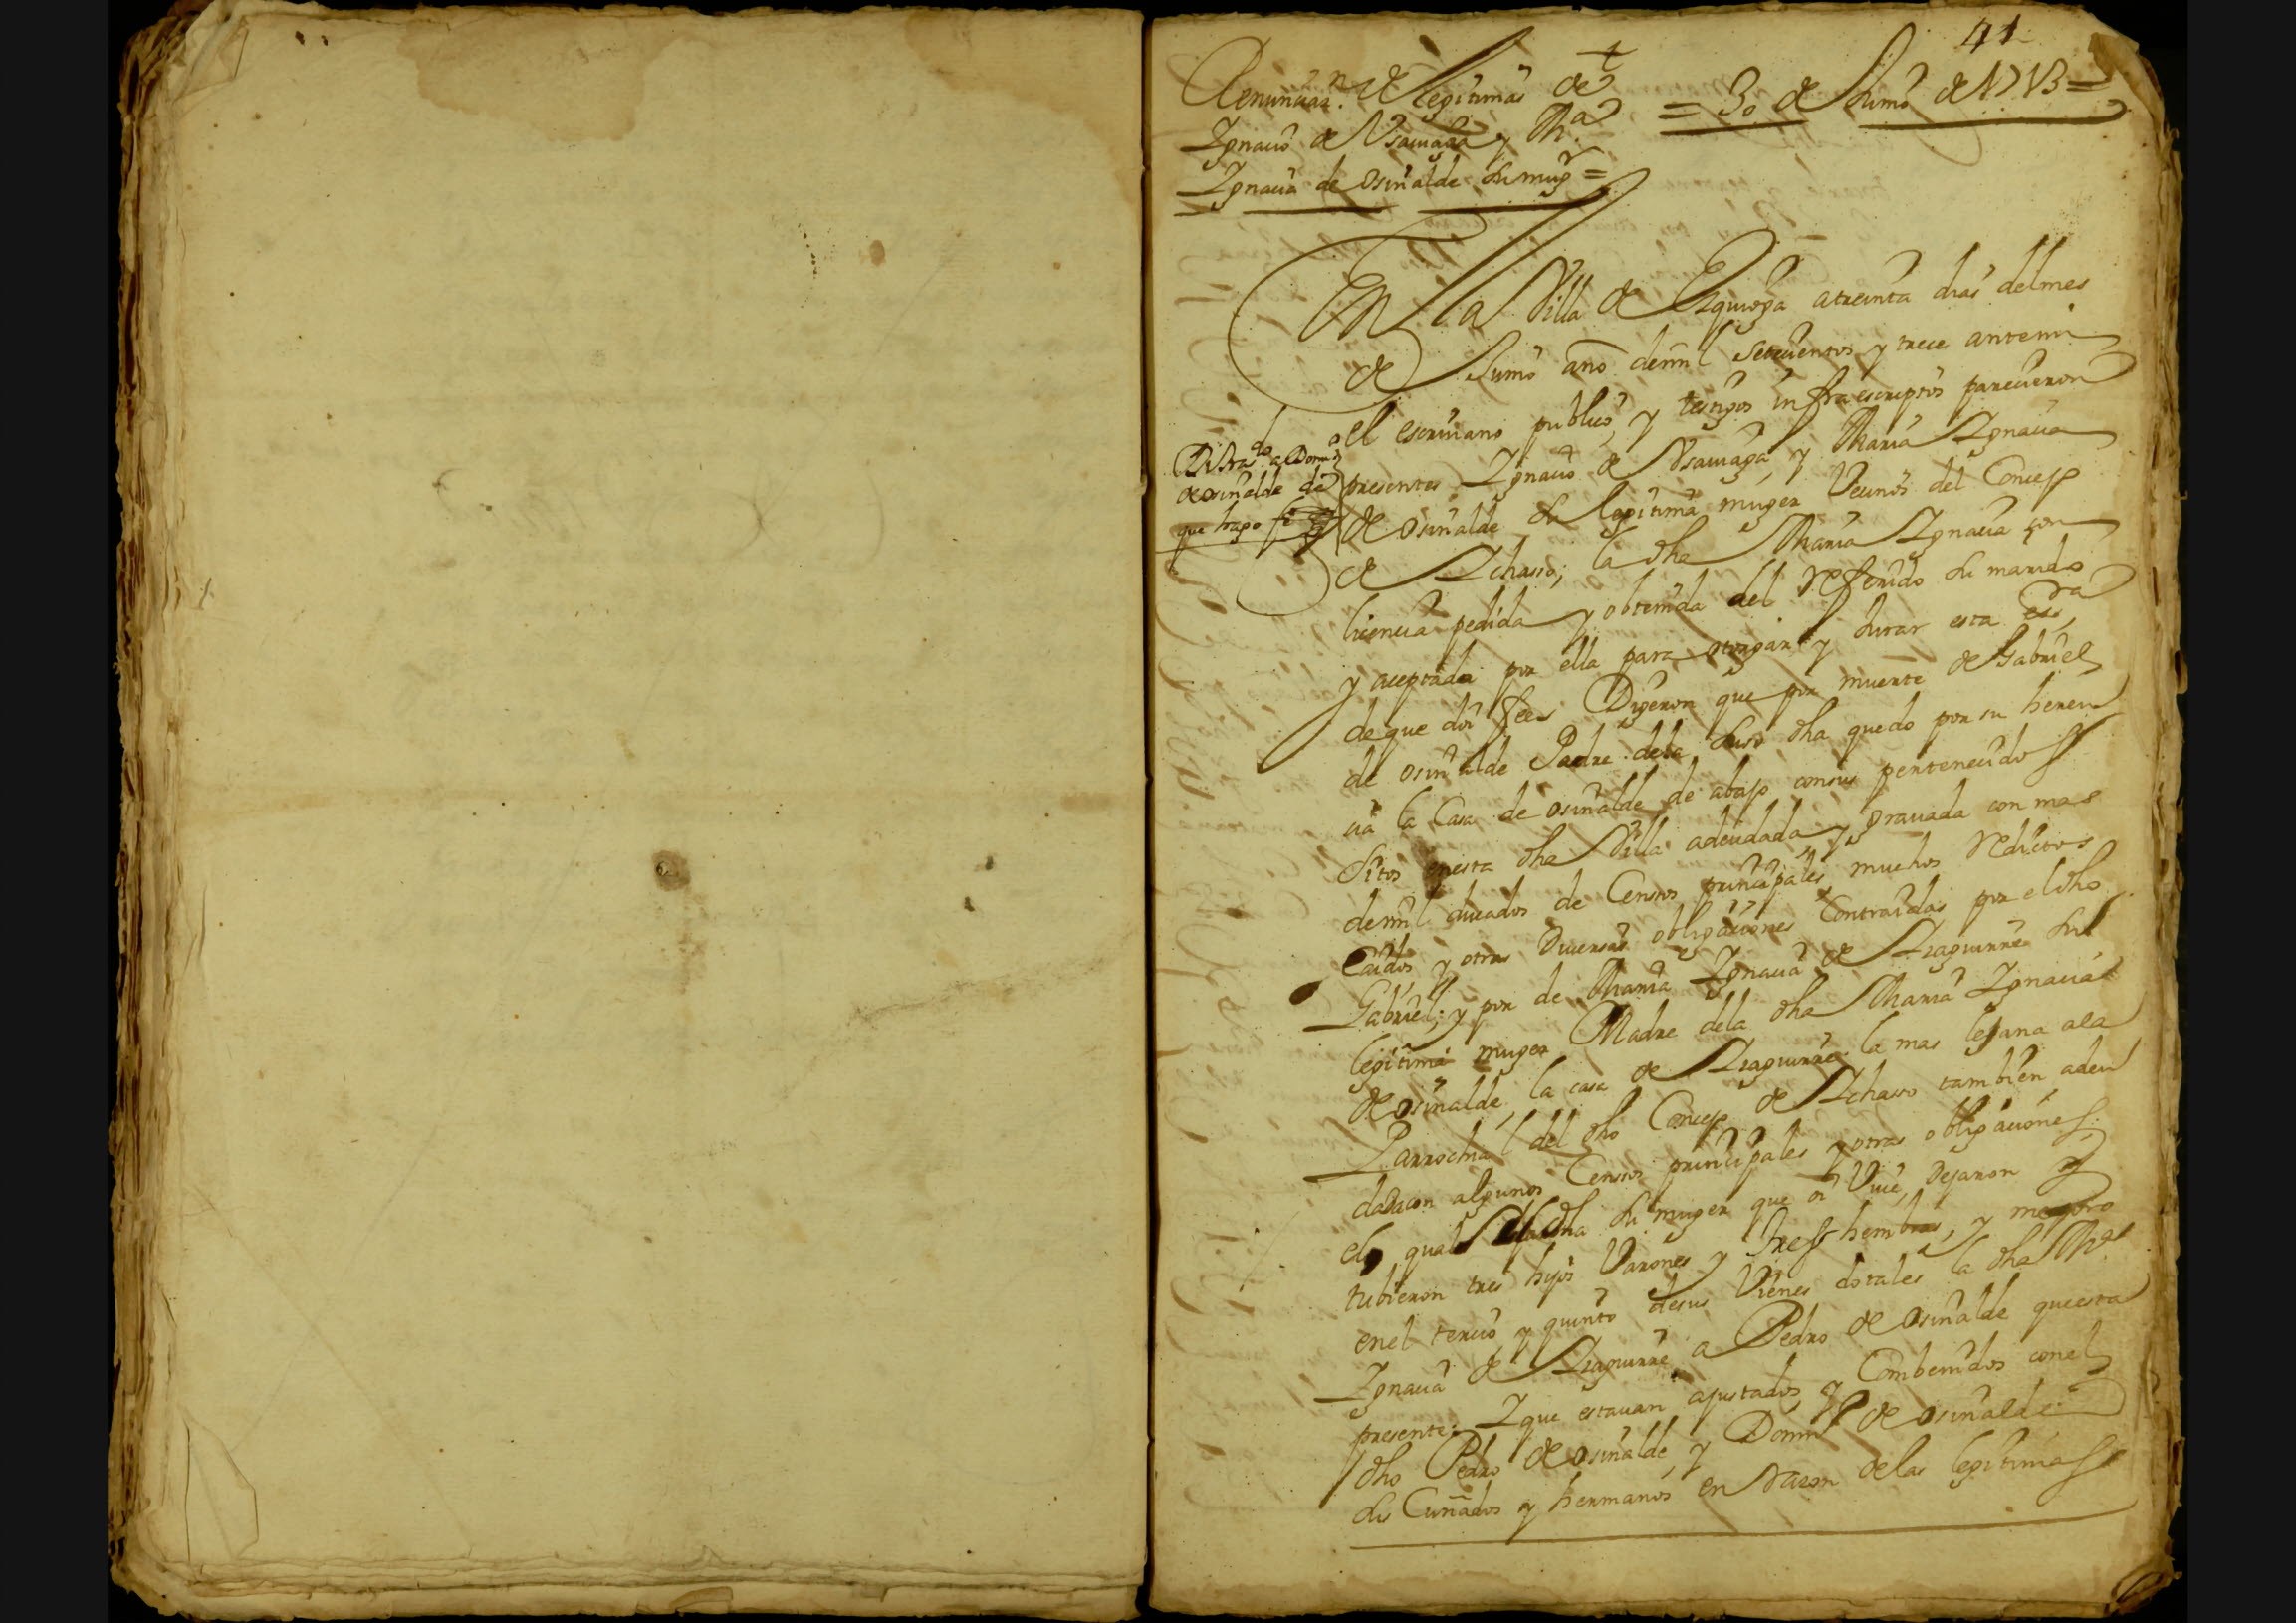 41
Renunciaz.n de legitimas de
= 30 de Junio de 1713 =
Ygnacio de Vsauiaga y M.a
Ygnacia de Osinalde su mug.r =
En la Villa de Ezquioga a treinta dias del mes
de Junio año de mil Setecientos y trece antemi
el escriuano publico, y testigos infraescriptos parecieron
presentes Ygnacio de Vsauiaga, y Maria Ygnacia
de Osinalde su legitima muger Vecinos del Concejo
de Ychasso; la dha Maria Ygnacia con
licencia pedida y obtenida del Referido su marido
y aceptada por ella para otorgar y Jurar esta ess.ra
de que doi fee Dijeron que por muerte de Gabriel
de Osinalde Padre dela suso dha quedo por su heren
cia la Casa de Osinalde de abajo consus pertenecidos
Sitos enesta dha Villa adeudada y grauada con mas
demil ducados de Censos principales, muchos Reditos
Caidos, y otras Diuersas obligaciones Contraidas por el dho
Gabriel; y por de Maria Ygnacia de Yzaguirre su
legitima muger Madre dela dha Maria Ygnacia
de Osinalde, la casa de Yzaguirre la mas lejana ala
Parrochial del dho Concejo de Ychasso tambien adeu
dada con algunos Censos principales y otras obligaciones
el qual dha su muger que oi Viue, Dejaron y
tubieron tres hijos Varones y tres hembras, y mejoro
enel tercio y quinto desus Vienes dotales la dha M.a
Ygnacia de Yzaguirre a Pedro de Osinalde que esta
presente: Y que estauan ajustados, y Combenidos conel
dho Pedro de Osinalde, y Domin.o de Osinalde
sus Cuñados y hermanos en Razon delas legitimas
Di tras.do a Domin.o
de osinalde de
que hago fee